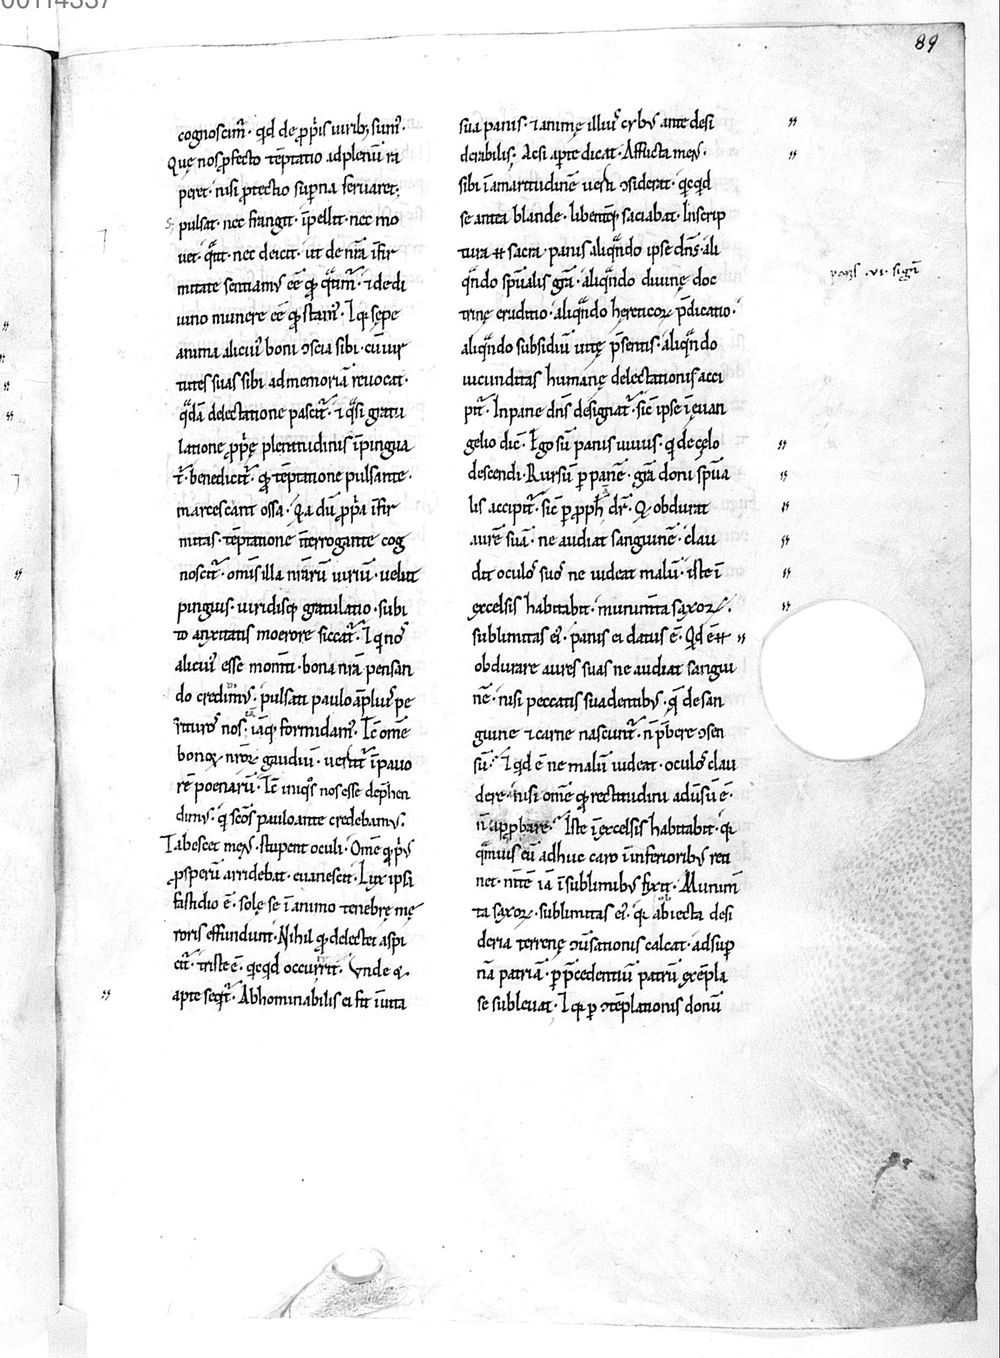 89
cognoscim̄. qd de ꝓpriis uirib; sum᷒.
Quę nos ꝓfecto tēptatio ad plenū ra
peret. nisi ꝓtectio supna seruaret.
pulsat. nec frangit. īpellit. nec mo
uet. qͣtit. nec deicit. ut de nr̄a īfir
mitate sentiam᷒ eē qd qͣtim̄. ⁊ de di
uino munere eē qd stam᷒. Iqd sępe
anima alicui᷒ boni ꝯscia sibi. cū uir
tutes suas sibi ad memoriā reuocat.
qͣdā delectatione pascit̄. ⁊ qͣsi gratu
latione ꝓprię plenitudinis īpingua
t̄. benedicit̄. qd tēptatione pulsante.
marcescant ossa. Qa dū ꝓpria īfir
mitas. tēptatione īterrogante cog
noscit̄. om̄s illa nr̄arū uiriū. uelut
pinguis. uiridisq; gratulatio. subi
to anxietatis moerore siccat̄. I qui nos
alicui᷒ esse momti. bona nr̄a pensan
do credim᷒. pulsati paulo ap̄lius pe
rituros nos iāq; formidam᷒. Tc̄ om̄e
bonoꝝ nr̄oꝝ gaudiū. uertit̄ ī pauo
rē poenarū. Tc̄ iniqͦs nos esse dep̄hen
dim᷒. qui sc̄os paulo ante credebam᷒.
Tabescet mens. stupent oculi. Om̄e qd pri᷒
ꝓsperū arridebat. euanescit. Lux ipsa
fastidio ē. solę se ī animo tenebrę mę
roris effundunt. Nihil qd delectet aspi
cit̄. triste ē. qcqd occurrit. Vnde &
apte seqͥt̄. Abhominabilis ei fit ī uita
sua panis. ⁊ animę illius cybus ante desi
derabilis. Acsi apte dicat. Afflicta mens.
sibi ī amaritudinē uerti ꝯsiderat. qcqd
se antea blande. libentq; saciabat. In scrip
tura ÷ sacra. panis aliqͣndo ipse dn̄s. ali
qͣndo spūalis gr̄a. aliqͣndo diuinę doc
trinę eruditio. aliqͣndo hereticoꝝ p̄dicatio.
aliqͣndo subsidiū uitę p̄sentis. aliqͣndo
iucunditas humanę delectationis acci
pit̄. In pane dn̄s designat̄. sic ipse ī euan
gelio dic̄. Ego sū panis uiuus. q de cęlo
descendi. Rursū ꝑ panē. gr̄a doni spūa
lis accipit̄. sic ꝑ ꝓph̄ dr̄. Qui obdurat
aurē suā. ne audiat sanguinē. clau
dit oculos suos ne uideat malū. iste ī
excelsis habitabit. munimta saxoꝝ.
sublimitas ei᷒. panis ei datus ē. Qd ē ÷
obdurare aures suas ne audiat sangui
nē. nisi peccatis suadentib᷒. que de san
guine ⁊ carne nascunt̄. n̄ p̄bere ꝯsen
sū. I qd ē ne malū uideat. oculos clau
dere. nisi om̄e qd rectitudini aduersū ē.
n̄ approbare. Iste ī excelsis habitabit. qa
qͣmuis eū adhuc caro ī inferiorib᷒ reti
net. mtē iā ī sublimib᷒ fixit. Munim
ta saxoꝝ. sublimitas ei᷒. qa abiecta desi
deria terrenę ꝯuersationis calcat. ad sup
nā patriā. ꝑ p̄cedentiū patrū exēpla
se subleuat. I qa ꝑ ꝯtēplationis donū